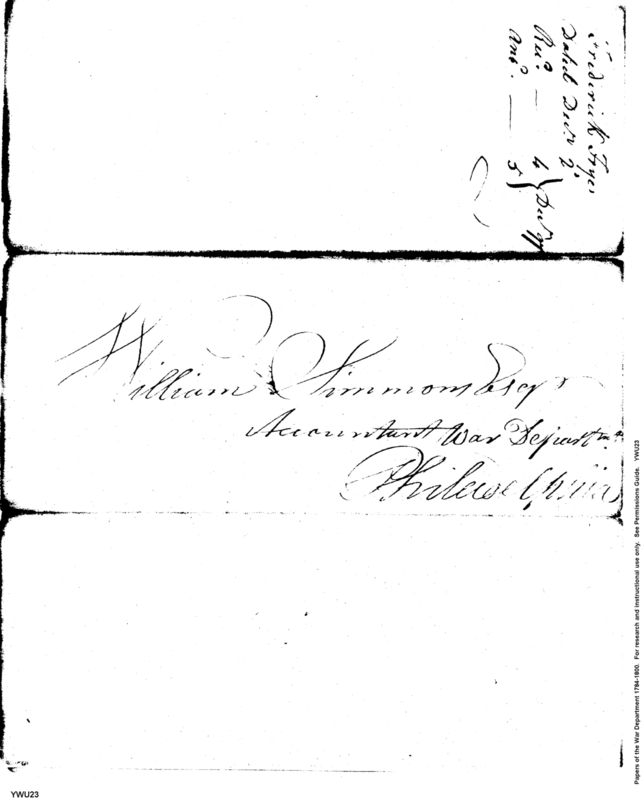 Frederick Frye
Dated Decr. 2d
Recd. — 4 } Decr 99
Ansd. — 5 }
William Simmons Esqr
Accountant War Departmt.
Philadelphia
YWU23
Papers of the War Department 1784-1800. For research and instructional use only. See Permissions Guide. YWU23